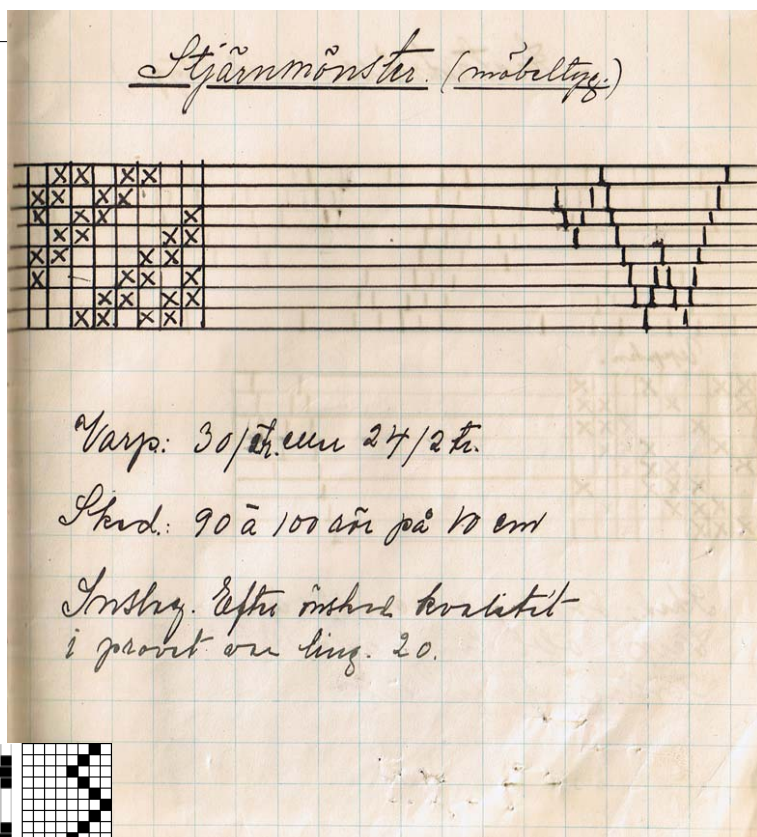 Stjärnmönster. (möbeltyg.)
Varp: 30/ tr. 24/2 tr.
Sked.: 90 à 100 rör på 10 cm
Inslag. Efter önskad kvalitét
i provet var ling. 20.